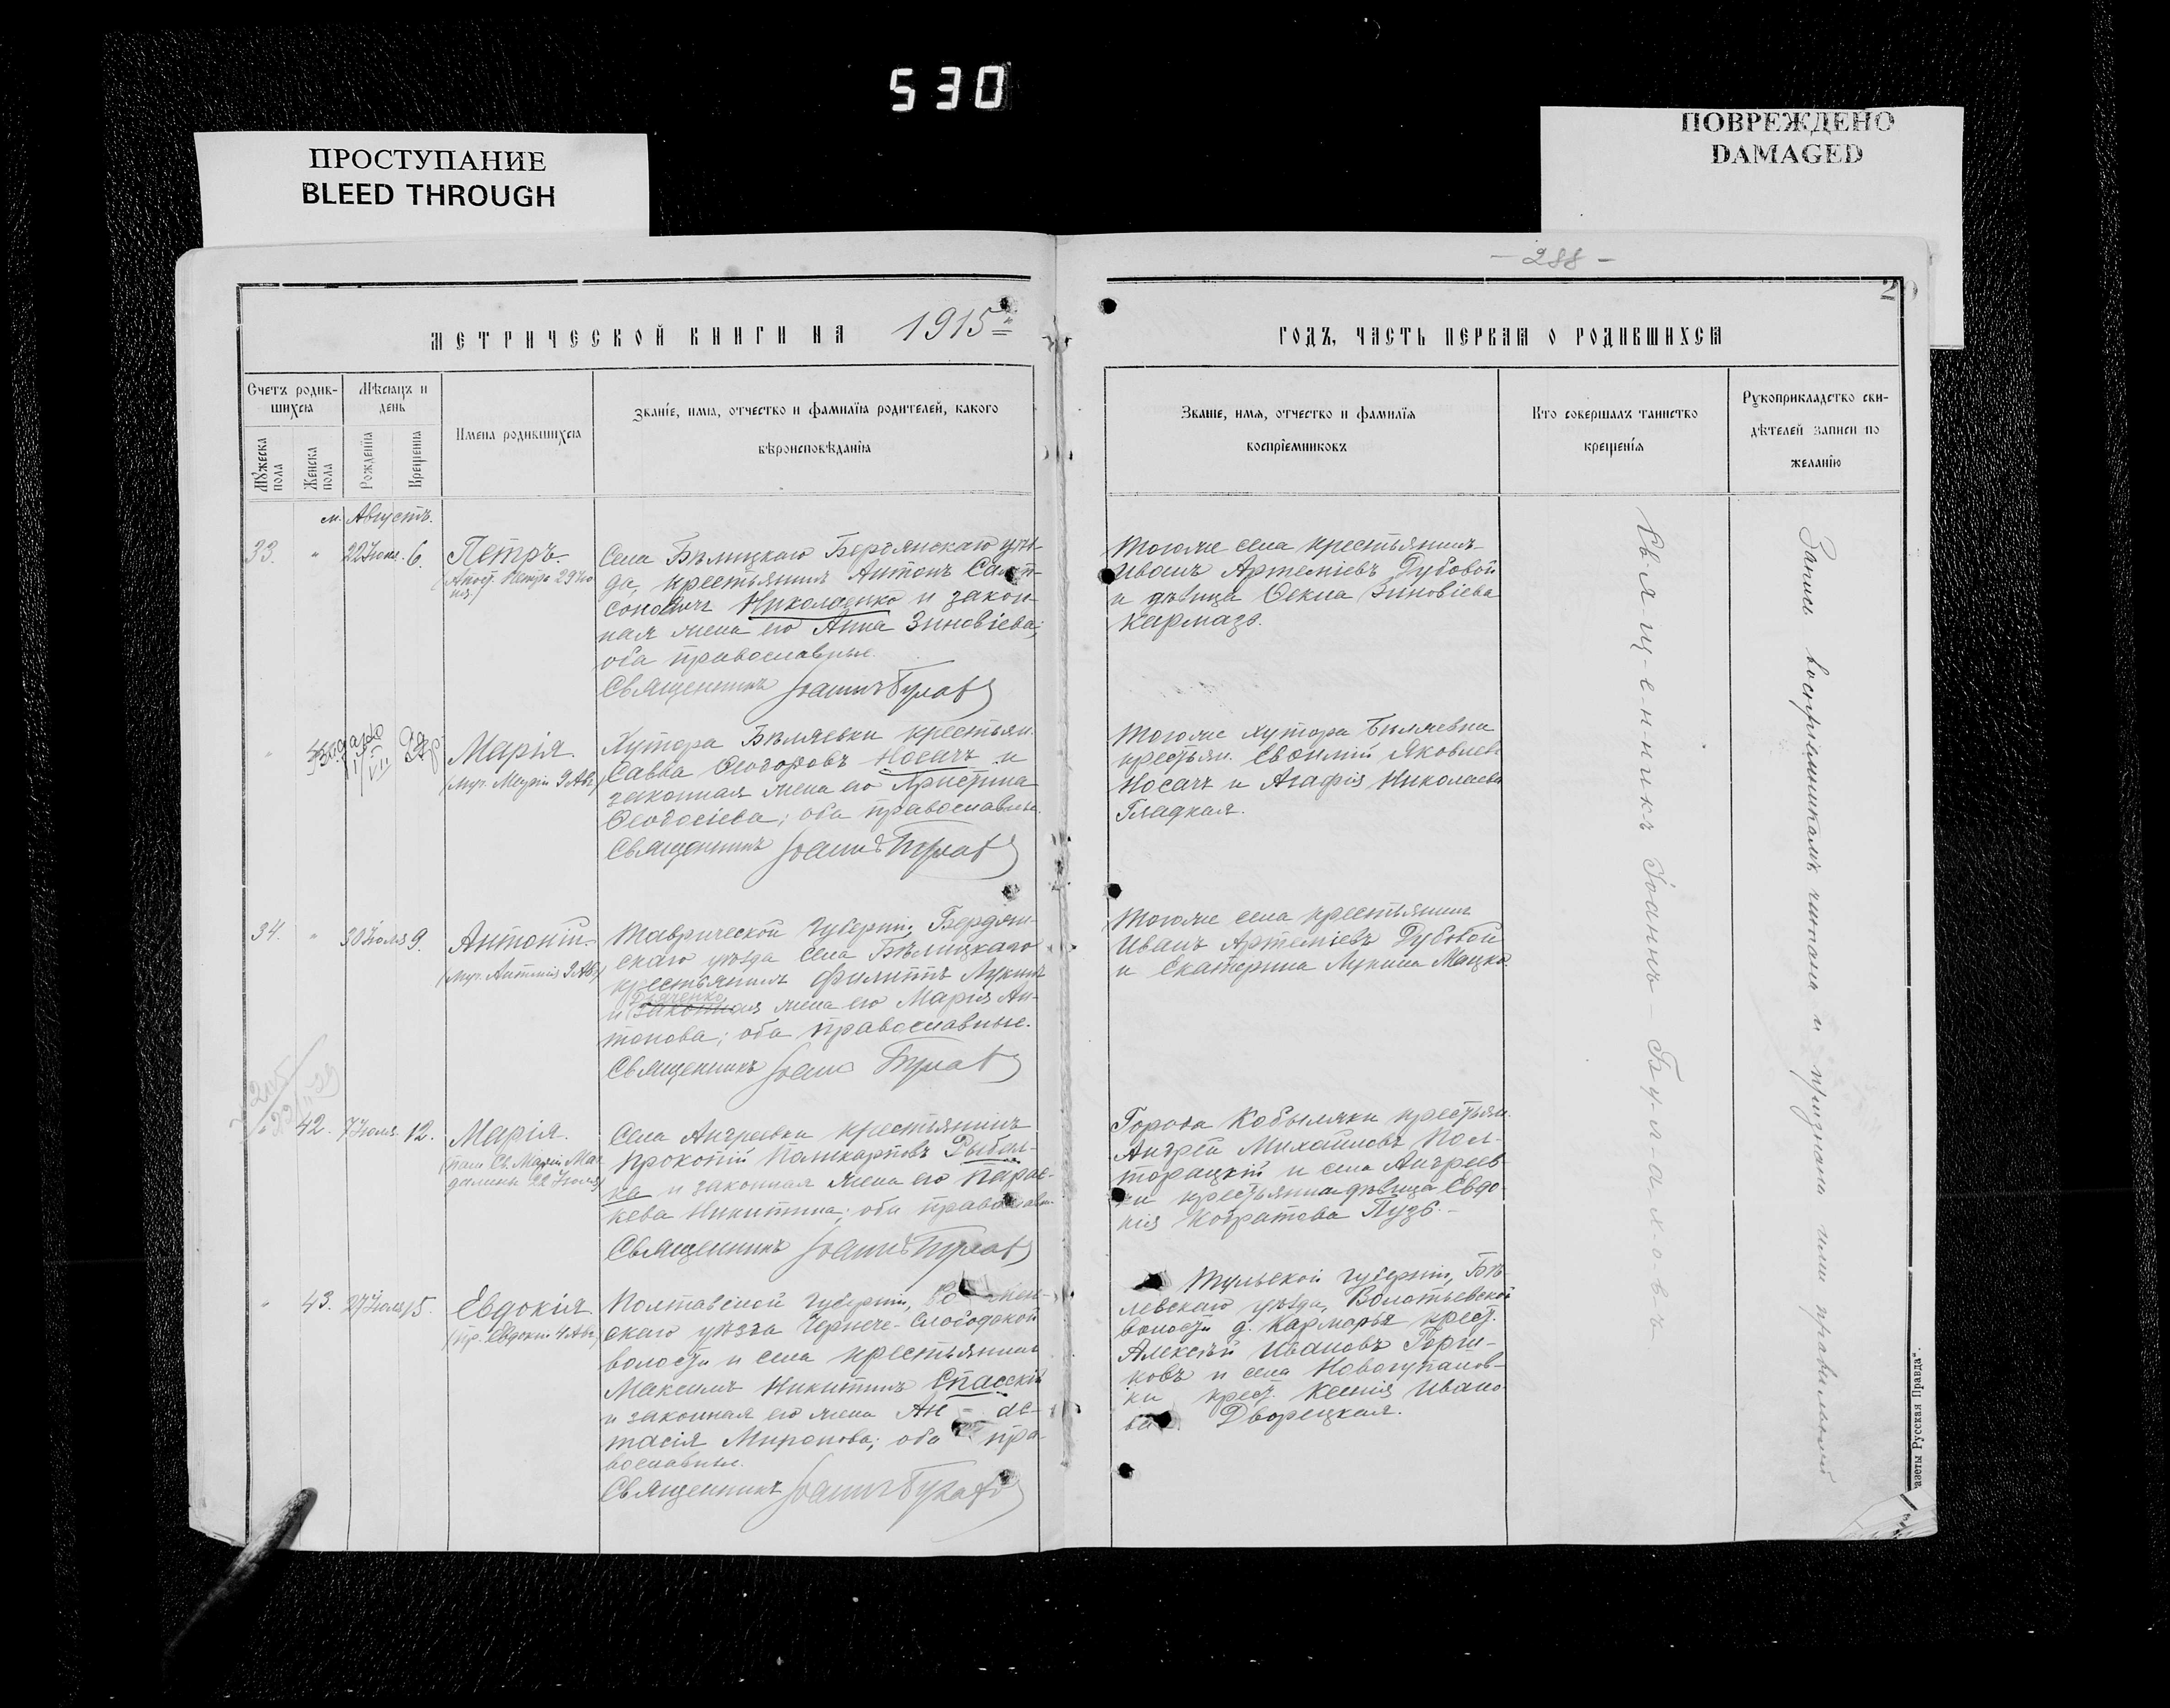 530
ПРОСТУПАНИЕ
BLEED THROUGH
ПОВРЕЖДЕНО
DAMAGED
- 288 -
МЕТРИЧЕСКОЙ КНИГИ НА 1915
ГОДЪ, ЧАСТЬ ПЕРВАЯ О РОДИВШИХСЯ
Счетъ родив-
шихся
Мѣсяцъ и
день
Мужеска
пола
Женска
пола
Рожденія
Крещенія
Имена родившихся
Званіе, имя, отчество и фамилія родителей, какого
вѣроисповѣданія
Званіе, имя, отчество и фамилія
воспріемниковъ
Кто совершалъ таинство
крещенія
Рукоприкладство сви-
дѣтелей записи по
желанію
м. Августъ.
33. " 22 Іюня. 6.
Петръ.
(Апост. Петра 29 Ію
ня)
Села Бѣлицкаго Бердянскаго уѣз-
да, крестьянинъ Антонъ Самп-
соновичъ Николаенко и закон-
ная жена его Анна Зиновіева;
оба православные.
Священникъ Іоаннъ Булах
Тогоже села крестьянинъ
Иванъ Артеміевъ Дубовой
и дѣвица Ѳекла Зиновіева
Кармазъ.
Марія.
(муч. Маріи 9 Авг)
Хутора Бѣляевки крестьян.
Савва Ѳеодоровъ Носачъ и
законная жена его Христина
Ѳеодосіева; оба православные.
Священникъ Іоаннъ Булах
Тогоже хутора Бѣляевки
крестьян. Евѳимій Яковлевъ
Носачъ и Агафія Николаева
Гладкая.
34. " 30 Іюля 9.
Антоній
(муч. Антонія 9 Авг)
Таврической губерніи, Бердян-
скаго уѣзда села Бѣлицкаго
крестьянинъ Филиппъ Лукинъ
Дяченко
и законная жена его Марія Ан-
тонова; оба православные.
Священникъ Іоанн Булах
Тогоже села крестьянинъ
Иванъ Артеміевъ Дубовой
и Екатерина Лукина Мацко.
" 42. 7 Іюля. 12.
Марія.
(пам. Св. Маріи Маг-
далины 22 Іюля)
Села Андреевки крестьянинъ
Прокопій Поликарповъ Рыбал-
ка и законная жена его Парас-
кева Никитина; оба православн.
Священникъ Іоаннъ Булах
Города Кобыляки крестьян.
Андрей Михайловъ Пол-
торацкій и села Андреев-
ки крестьянка дѣвица Евдо-
кія Кондратова Пузъ.
" 43. 27 Іюля 15.
Евдокія
(пр. Евдокіи 4 Авг)
Полтавской губерніи,
скаго уѣзда Чернече-Слободской
волости и села крестьянинъ
Максимъ Никитинъ Спасскій
и законная его жена Ана-
тасія Миронова; оба пра-
вославные.
Священникъ Іоаннъ Булахо
Тульской губерніи, Бѣ-
левскаго уѣзда,
волости д. крест.
Алексѣй Ивановъ Горш-
ковъ и села Новогупалов-
ки крест. Ксенія Ивано-
ва Дворецкая.
Св-я-щ-е-н-н-и-к-ъ Іоаннъ Б-у-л-а-х-о-в-ъ
Запись воспріемникамъ читана и признана ими правильной
азеты Русская Правда".